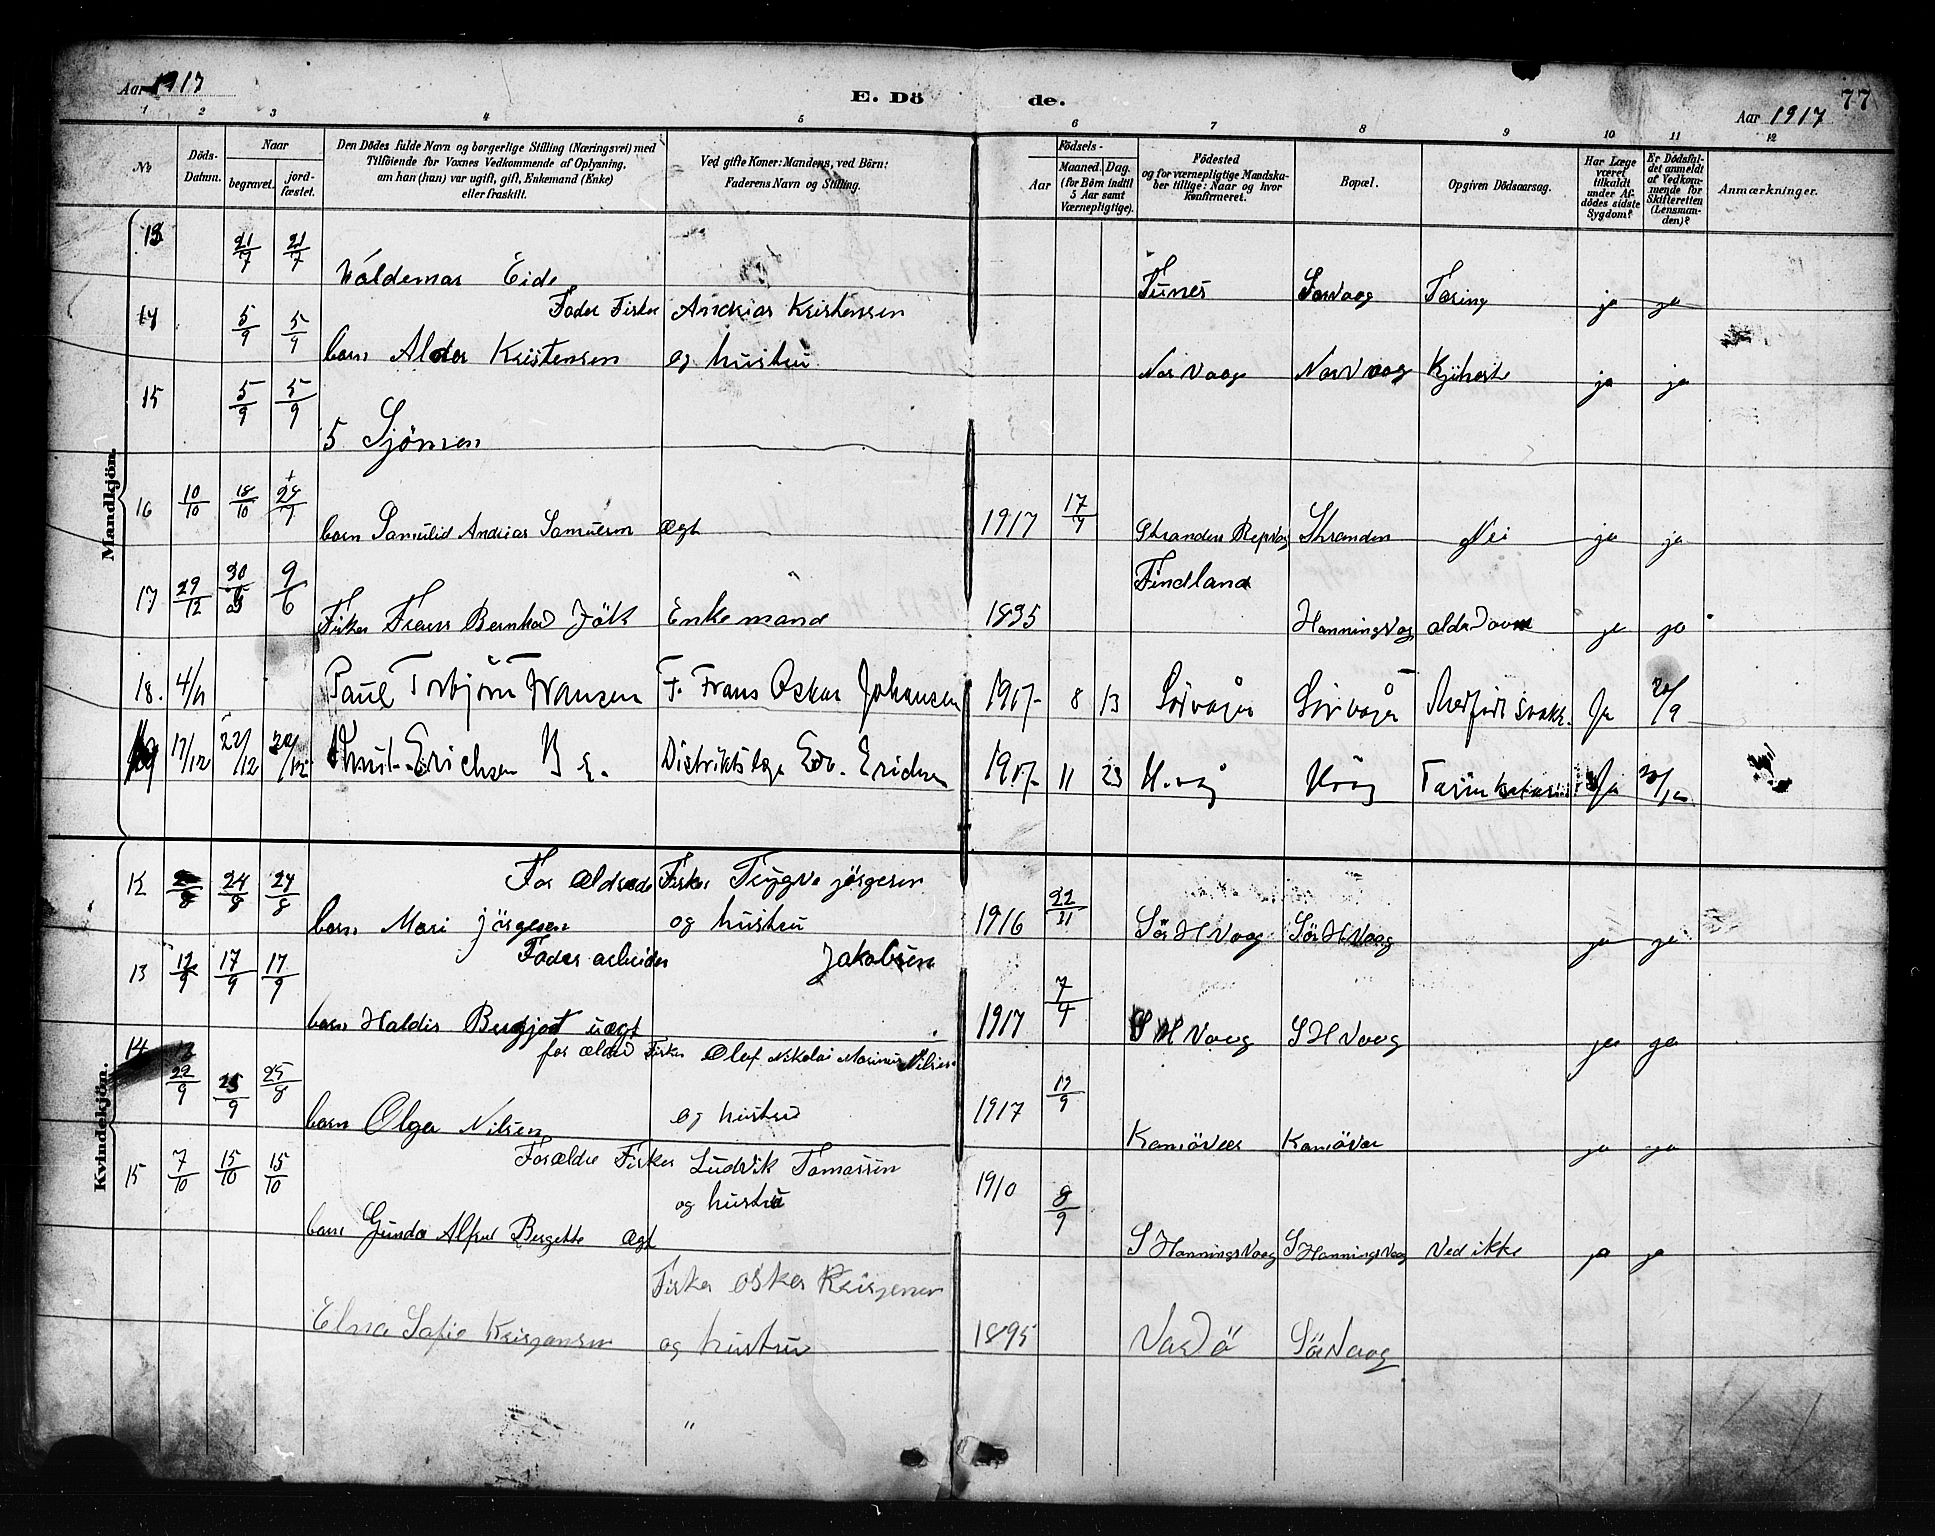 Aar 1917
E. Dö de.
Aar 1917
77
1 2 3 4 5 6 7 8 9 10 11 12
No
Döds-Datum.
Naar
begravet.
jordfæstet.
Den Dödes fulde Navn og borgerlige Stilling (Næringsvei) med
Tilföiende for Voxnes Vedkommende af Oplysning,
om han (hun) var ugift, gift, Enkemand (Enke)
eller fraskilt.
Ved gifte Koner: Mandens, ved Börn:
Faderens Navn og Stilling.
Födsels-
Aar
Maaned.
Dag.
(for Börn indtil
5 Aar samt
Værnepligtige).
Födested
og for værnepligtige Mandskaber tillige: Naar og hvor
konfirmeret.
Bopæl.
Opgiven Dödsaarsag.
Har Læge
været
tilkaldt
under Afdödes sidste
Sygdom?
Er Dödsfaldet anmeldt
af Vedkommende for
Skifteretten
(Lensmanden)?
Anmærkninger.
Mandkjön.
13 21/7 21/7 Valdemar Eide Sörvaag Tæring ja ja
Fader Fisker Andrias Kristensen
14 5/9 5/9 barn Kristensen og hustru Nor Vaag Nor Vaag Kjihoste ja ja
15 5/9 5/9 5 Sjömen
16 10/10 18/10 barn Andrias Samuelsen ægt 1917 17/7 Stranden Repvåg Stranden Nei ja ja
Findland
17 29/12 9/6 Fisker Frans Bernhad Jök Enkemand 1835 Hanningsvog ja ja
18. 4/9 Paul Torbjörn Fransen F. Frans Oskar Johansen 1917 8 13 Sörvåger Sörvåger Medfödt svakh. Ja 20/9
19 17/12 22/12 22/12 Knut Erichsen Distriktslæge Edv. Erichsen 1917 11 23 H.våg Hvåg Tarmkatarrh Ja
Kvindekjön.
Forældrede Fisker Trygve jörgesen
12 24/8 24/8 barn Mari jörgesen og hustru 1916 22/11 Sör H Vaag Sör H Vaag ja ja
Fader arbeider Jakobsen
13 12/9 17/9 17/9 barn Haldis Bergjot uægt 1917 7/4 S H Vaag S H Vaag ja ja
forældre Fisker Olaf Nikolai Marinus Nilsen
14 22/9 25/9 25/8 barn Olga Nilsen og hustru 1917 12/9 Kamöver Kamöver ja ja
Forældre Fisker Ludvik Tomassen
15 7/10 15/10 15/10 og hustru 1910 8/9
barn Gunda Alfred Bergette ægt S Hanningsvaag S Hanningsvaag Ved ikke ja ja
Fisker Oskar Krisjensen
Elna Sofie Krisjansen og hustru 1895 Vardö Sörvaag
"